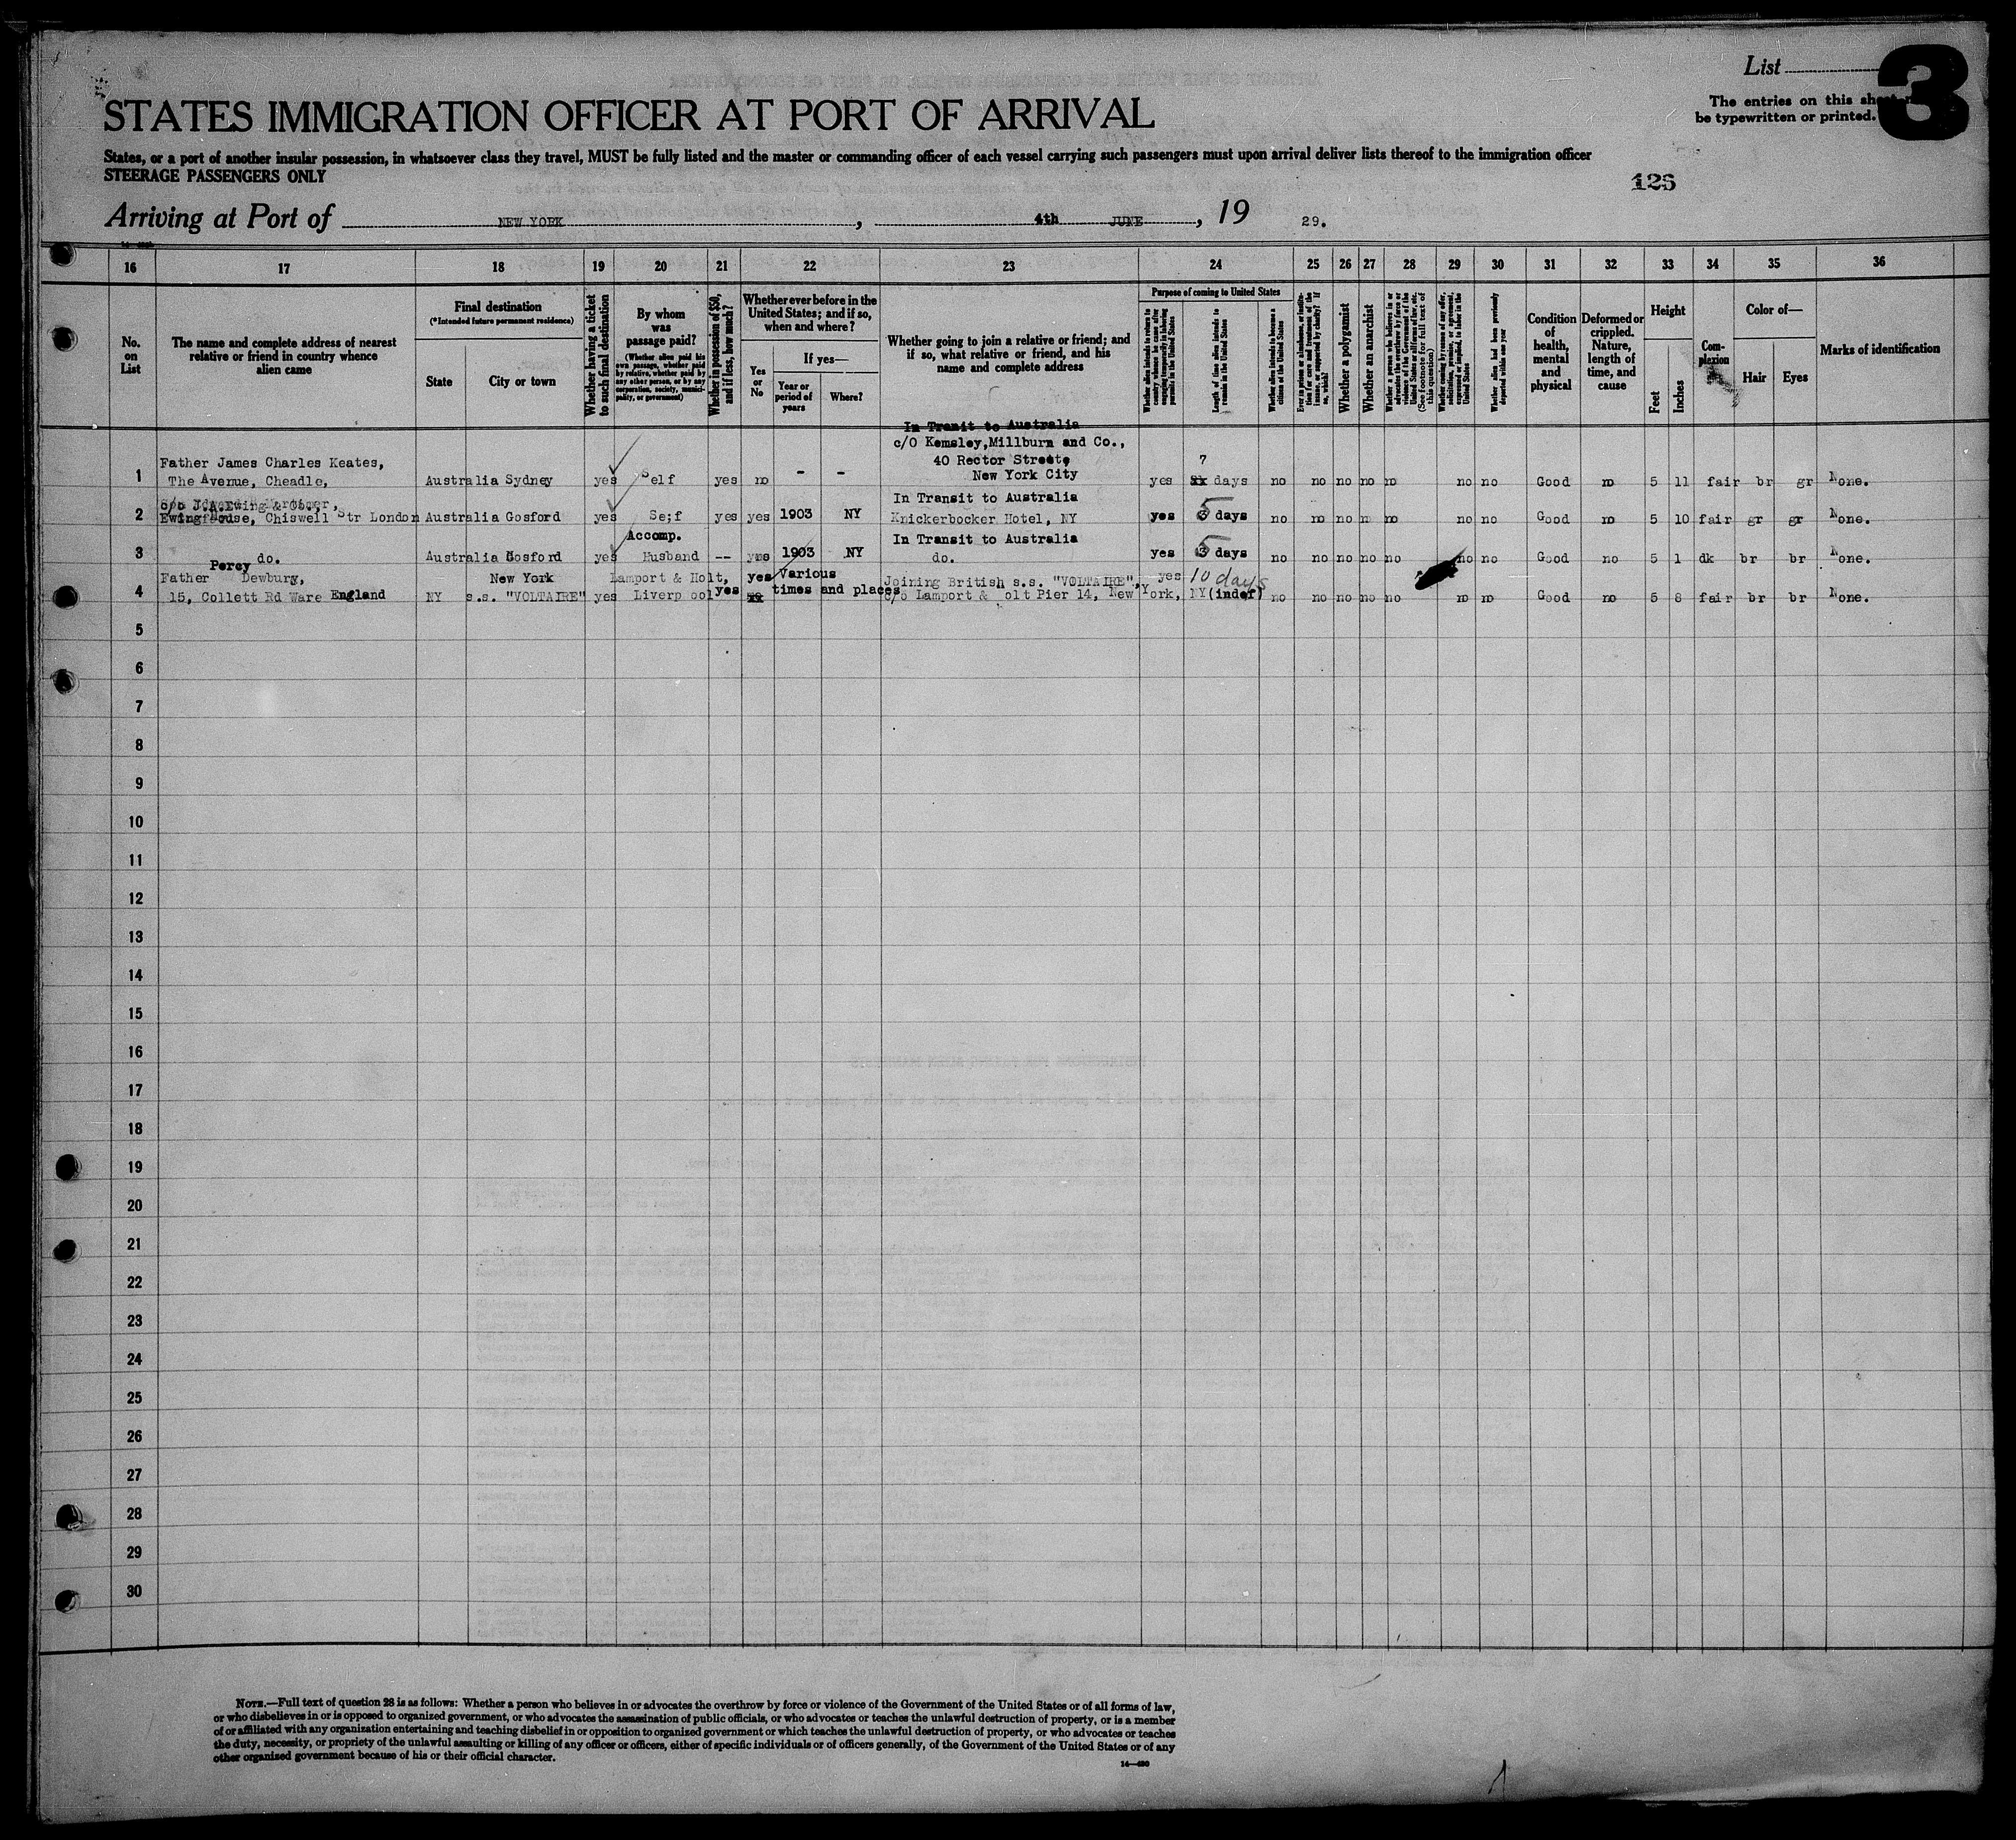 List 3
The entries on this sheet
be typewritten or printed.
STATES IMMIGRATION OFFICER AT PORT OF ARRIVAL
States, or a port of another insular possession, in whatsoever class they travel, MUST be fully listed and the master or commanding officer of each vessel carrying such passengers must upon arrival deliver lists thereof to the immigration officer
STEERAGE PASSENGERS ONLY
125
Arriving at Port of NEW YORK, 4th JUNE, 19 29.
16 17 18 19 20 21 22 23 24 25 26 27 28 29 30 31 32 33 34 35 36
No. on List
The name and complete address of nearest relative or friend in country whence alien came
Final destination
(*Intended future permanent residence)
State
City or town
Whether having a ticket to such final destination
By whom was passage paid?
(Whether alien paid his own passage, whether paid by relative, whether paid by any other person, or by any corporation, society, municipality, or government)
Whether in possession of $50, and if less, how much?
Whether ever before in the United States; and if so, when and where?
Yes or No
If yes—
Year or period of years
Where?
Whether going to join a relative or friend; and if so, what relative or friend, and his name and complete address
Purpose of coming to United States
Length of time alien intends to remain in the United States
Whether alien intends to become a citizen of the United States
Whether a polygamist
Whether an anarchist
Whether alien had been previously deported within one year
Condition of health, mental and physical
Deformed or crippled. Nature, length of time, and cause
Height
Feet
Inches
Complexion
Color of—
Hair
Eyes
Marks of identification
In Transit to Australia
c/o Kemsley, Millburn and Co.,
40 Rector Street,
New York City
1 Father James Charles Keates,
The Avenue, Cheadle, Australia Sydney yes Self yes no - - yes 7 days no no no no no no no Good no 5 11 fair br gr None.
In Transit to Australia
2 Ewing House, Chiswell Str London Australia Gosford yes Se;f yes yes 1903 NY Knickerbocker Hotel, NY yes 5 days no no no no no no no Good no 5 10 fair gr gr None.
Accomp. In Transit to Australia
3 do. Australia Gosford yes Husband -- yes 1903 NY do. yes 5 days no no no no no no no Good no 5 1 dk br br None.
Percy
Father Dewburg, New York Lamport & Holt, yes Various Joining British s.s. "VOLTAIRE", yes 10 days
4 15, Collett Rd Ware England NY s.s. "VOLTAIRE" yes Liverpool yes times and places c/o Lamport & olt Pier 14, New York, NY (indef) no no no no no no no Good no 5 8 fair br br None.
5
6
7
8
9
10
11
12
13
14
15
16
17
18
19
20
21
22
23
24
25
26
27
28
29
30
NOTE.—Full text of question 28 is as follows: Whether a person who believes in or advocates the overthrow by force or violence of the Government of the United States or of all forms of law,
or who disbelieves in or is opposed to organized government, or who advocates the assassination of public officials, or who advocates or teaches the unlawful destruction of property, or is a member
of or affiliated with any organization entertaining and teaching disbelief in or opposition to organized government or which teaches the unlawful destruction of property, or who advocates or teaches
the duty, necessity, or propriety of the unlawful assaulting or killing of any officer or officers, either of specific individuals or of officers generally, of the Government of the United States or of any
other organized government because of his or their official character.
14—430